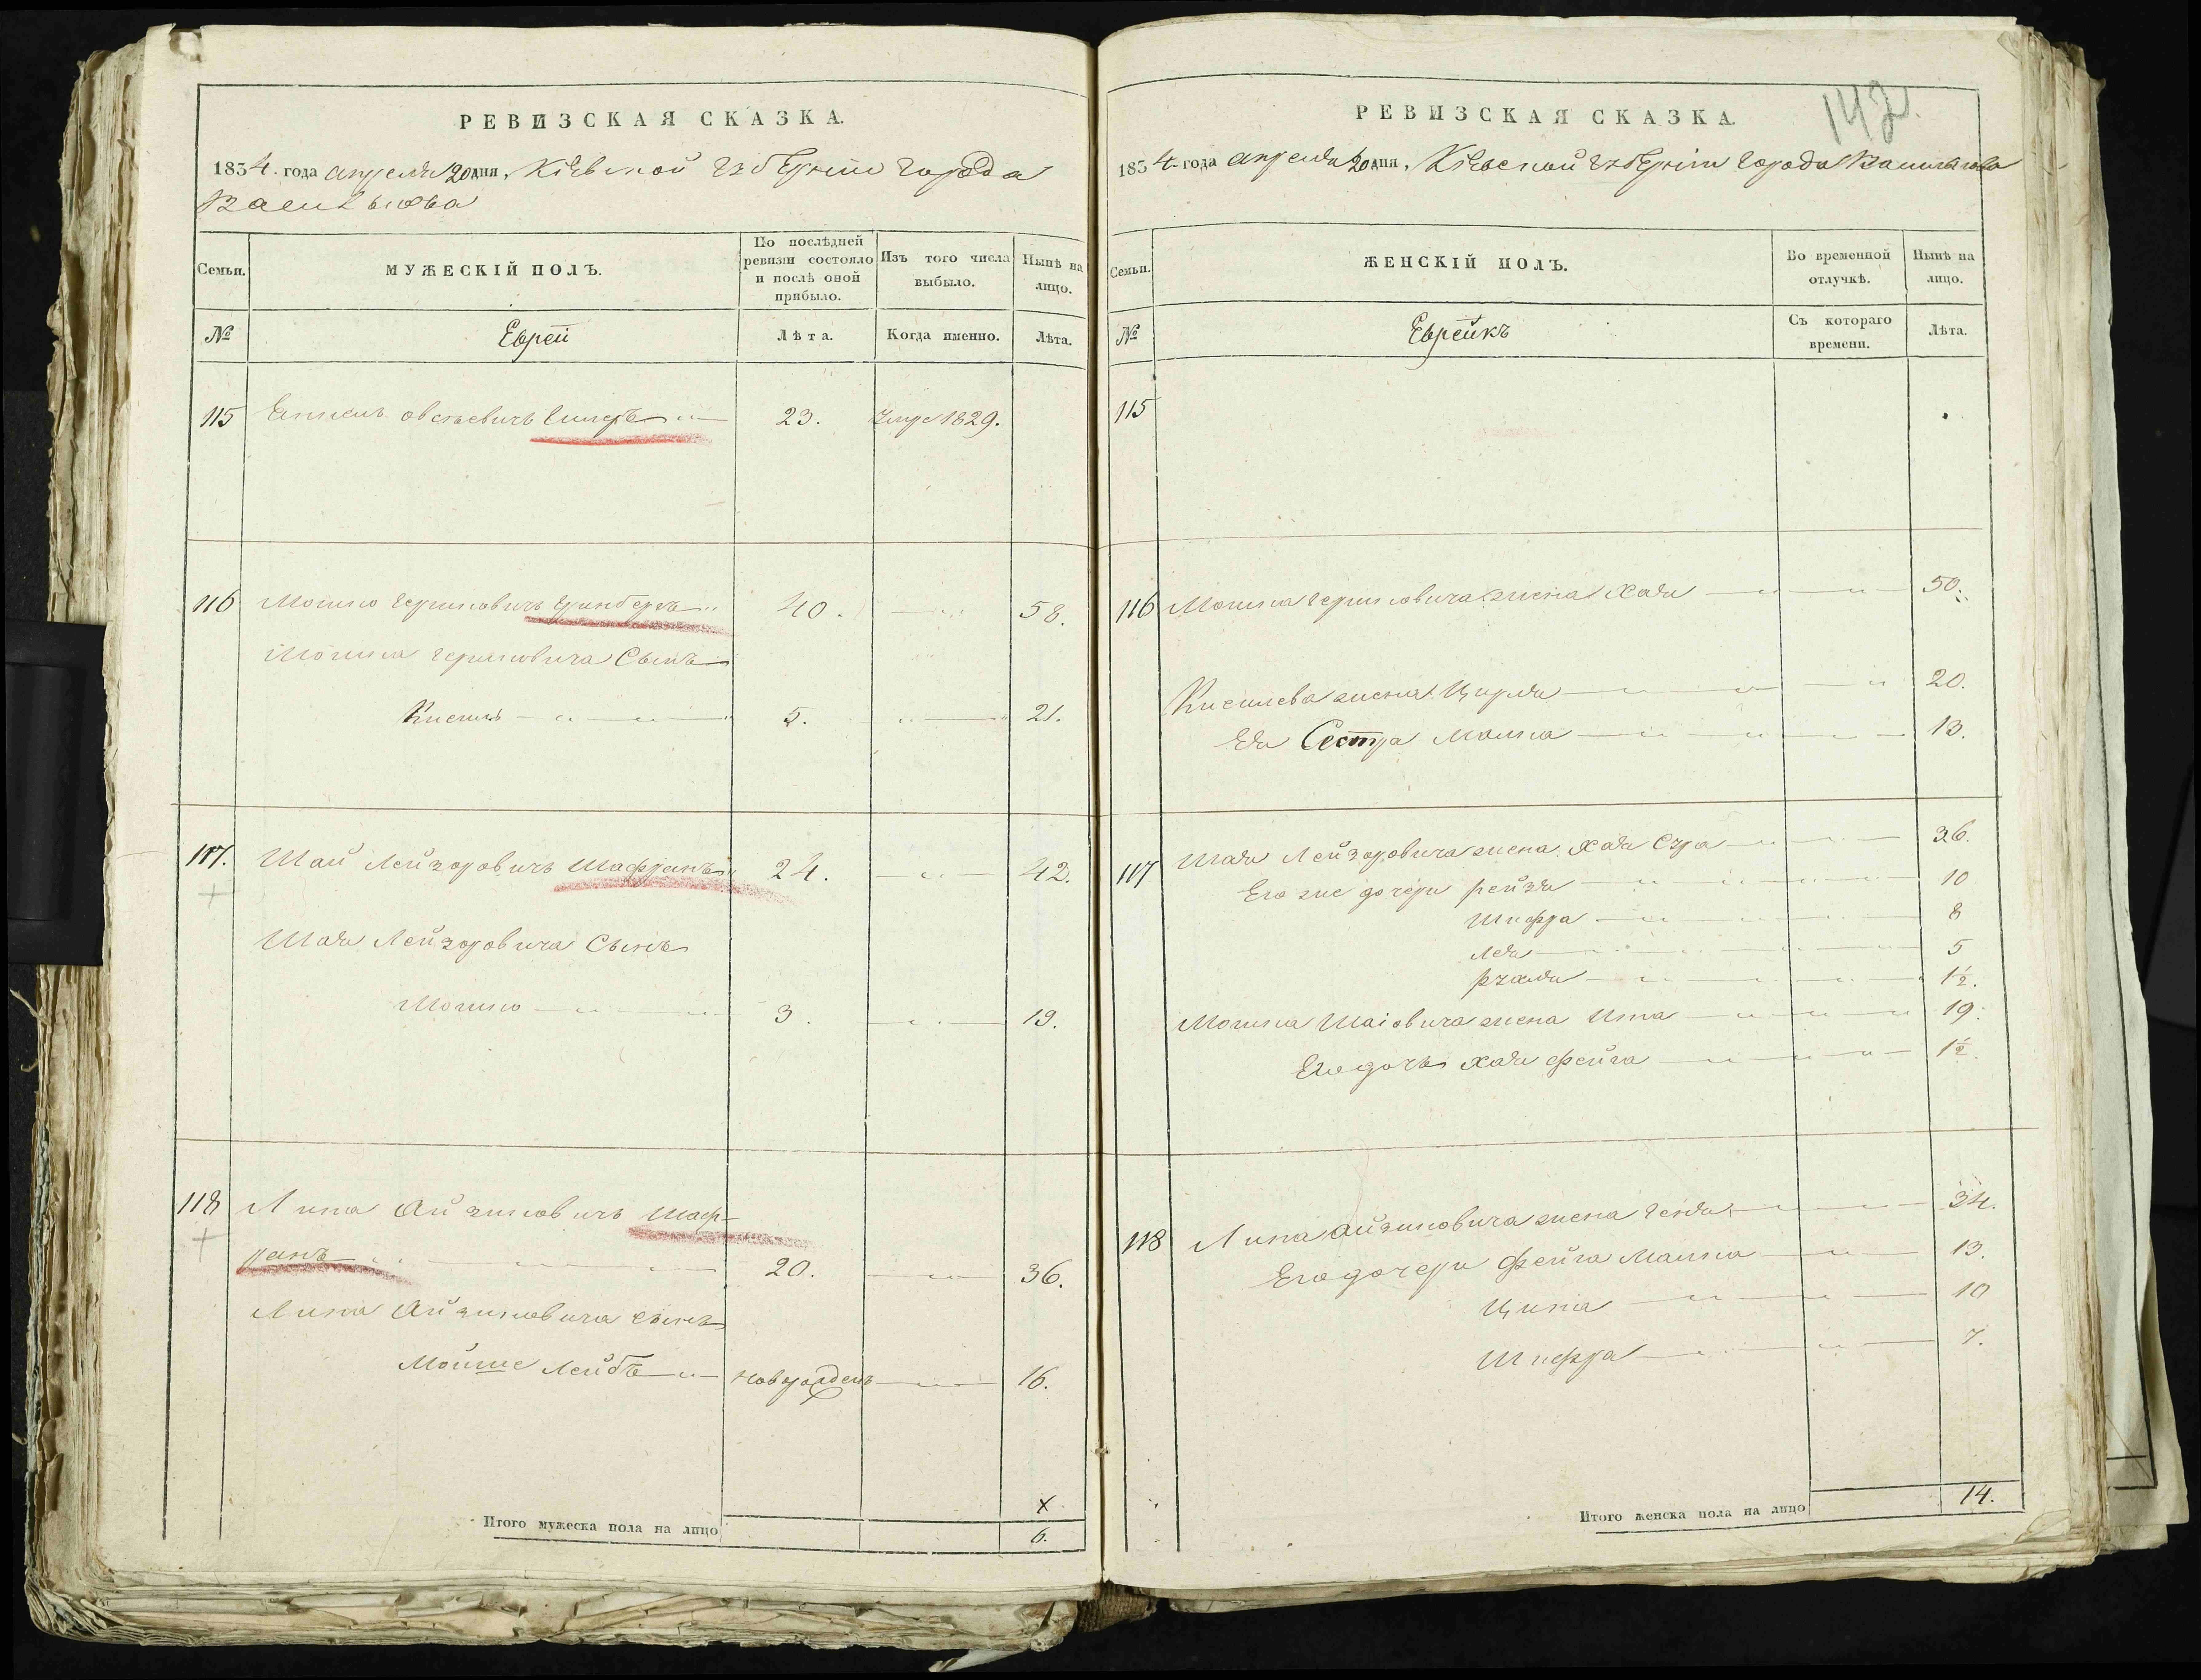 РЕВИЗСКАЯ СКАЗКА.
1834. года апреля 20 дня, Кіевской губерніи города
Василькова
Семьи.
МУЖЕСКІЙ ПОЛЪ.
По послѣдней ревизіи состояло и послѣ оной прибыло.
Изъ того числа выбыло.
Нынѣ на лицо.
№
Еврей
Лѣта.
Когда именно.
Лѣта.
115 23. 1829.
116 Мошко Гершковичъ Гринбергъ 40. 58.
Мошка Гершковича Сынъ
Кисиль 5. 21.
117. Шай Лейзоровичъ Шафранъ 24. 42.
Шаи Лейзоровича Сынъ
Мошко 3. 19.
118 Липа Айзиковичъ Шаф-
ранъ 20. 36.
Липа Айзиковича сынъ
Мойше Лейбъ новорожденъ 16.
х
Итого мужеска пола на лицо
6.
142.
РЕВИЗСКАЯ СКАЗКА.
1834. года апреля 20 дня, Кіевской губерніи города Василькова
Семьи.
ЖЕНСКІЙ ПОЛЪ.
Во временной отлучкѣ.
Нынѣ на лицо.
№
Еврейкъ
Съ котораго времени.
Лѣта.
115
116 Мошка Гершковича жена Хая 50.
Кисилева жена Цирля 20.
Ея Сестра Малка 13.
117 Шаи Лейзоровича жена Хая Сура 36.
Его же дочери рейзя 10
Шифра 8
Лея 5
рухля 1½.
Мошка Шаіовича жена Ита 19.
Его дочь Хая фейга 1½.
118 Липа Айзиковича жена Геня 34.
Его дочери Фейга Малка 13.
Ципа 10
Шифра 7.
Итого женска пола на лицо
14.